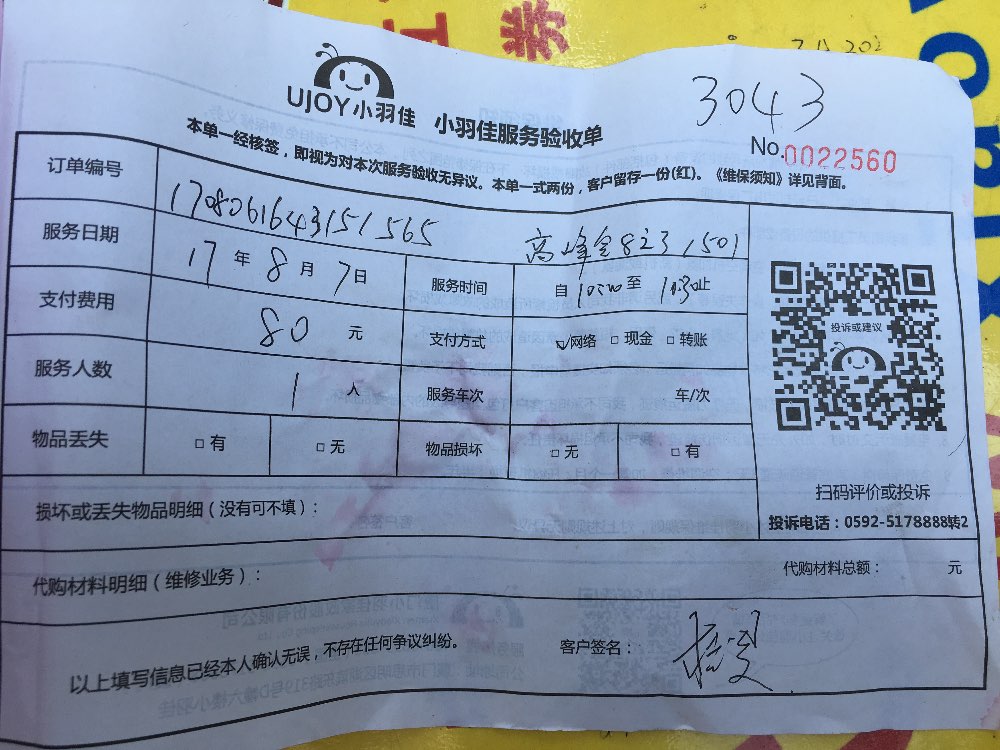 券
UJOY小羽佳 小羽佳服务验收单
3043
No.0022560
本单一经核签，即视为对本次服务验收无异议。本单一式两份，客户留存一份(红)。《维保须知》详见背面。
订单编号 1708061643151565
服务日期 17 年 8 月 7 日
服务时间 自 10:00 至 11:30 止
支付费用 80 元
支付方式 ☑网络 □现金 □转账
服务人数 1 人
服务车次 车/次
物品丢失 □有 □无
物品损坏 □无 □有
投诉或建议
扫码评价或投诉
投诉电话：0592-5178888转2
损坏或丢失物品明细（没有可不填）：
代购材料明细（维修业务）：
代购材料总额： 元
以上填写信息已经本人确认无误，不存在任何争议纠纷。
客户签名：